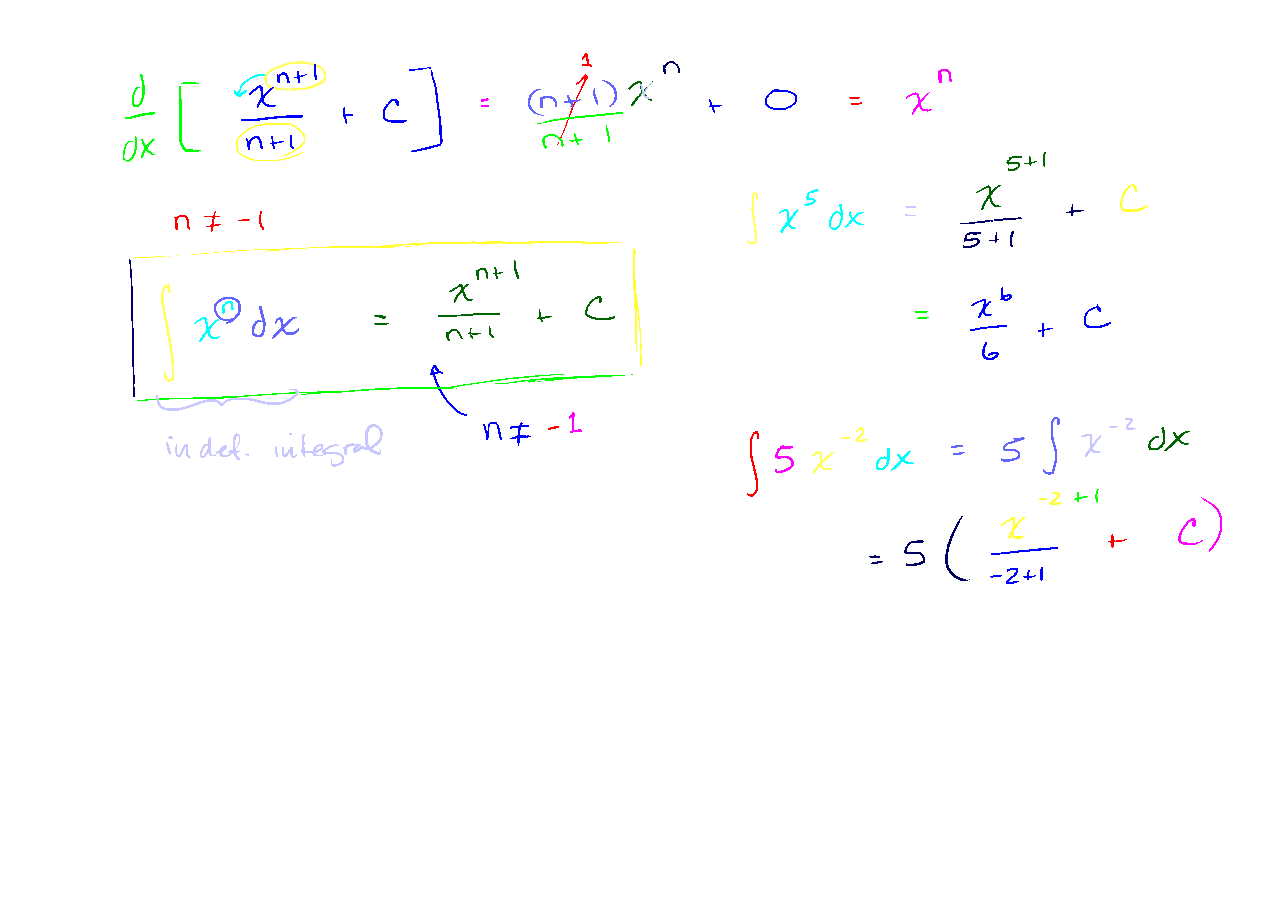 d/dx [ x^(n+1)/(n+1) + C ] = (n+1)x^n/(n+1) 1 + 0 = x^n
n ≠ -1
∫ x^n dx = x^(n+1)/(n+1) + C
n ≠ -1
indef. integral
∫ x^5 dx = x^(5+1)/(5+1) + C
= x^6/6 + C
∫ 5 x^(-2) dx = 5 ∫ x^(-2) dx
= 5 ( x^(-2+1)/(-2+1) + C )